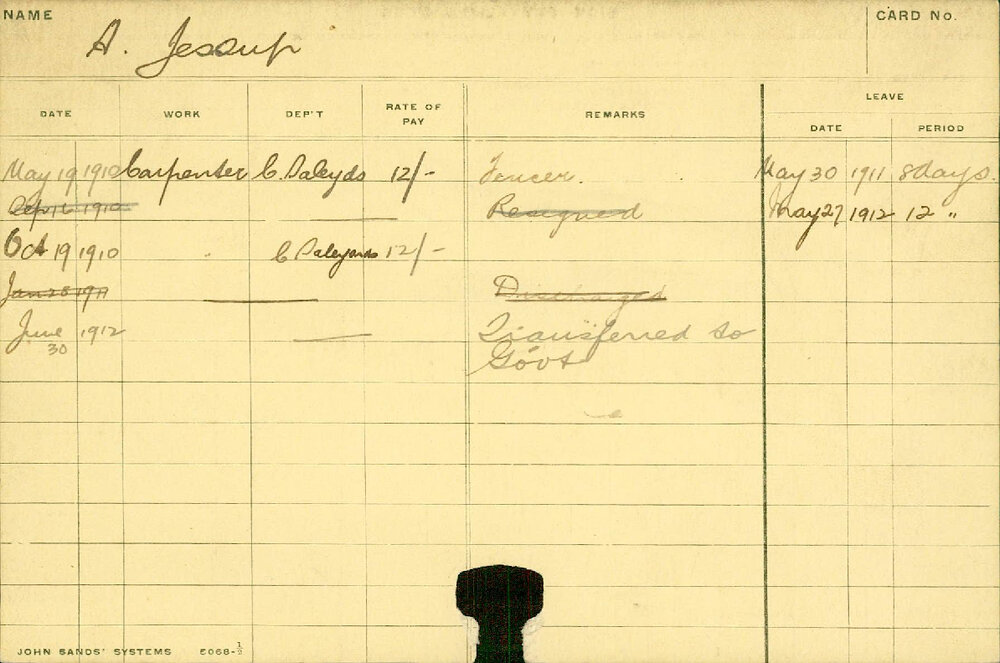 NAME
CARD No.
A. Jessup
DATE WORK DEP'T RATE OF PAY REMARKS LEAVE
DATE PERIOD
May 19 1910 Carpenter C. Saleyds 12/- Fencer. May 30 1911 8 days.
Sep 16 1910 Resigned May 27 1912 12 "
Oct 19 1910 C Saleyards 12/-
Jan 28 1911 Discharged
June 30 1912 Transferred to
Govt
JOHN SANDS' SYSTEMS 5068-½